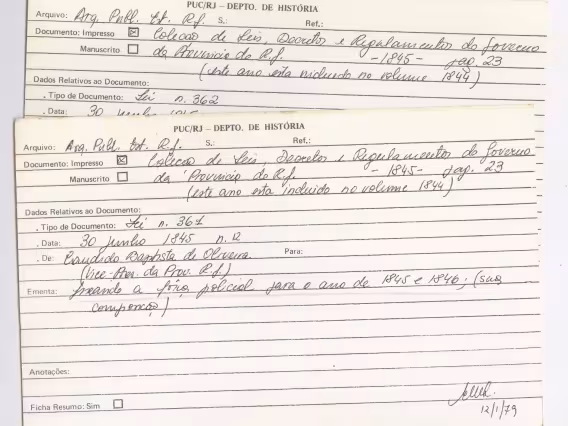 PUC/RJ — DEPTO. DE HISTÓRIA
Arquivo: Arq. Publ. Est. R.J. S.: Ref.:
Documento: Impresso ☒ Coleção de Leis, Decretos e Regulamentos do Governo
Manuscrito ☐ da Província do R.J. -1845- pag. 23
(este ano esta incluido no volume 1844)
Dados Relativos ao Documento:
. Tipo de Documento: Lei n. 362
. Data: 30 junho 1845
PUC/RJ — DEPTO. DE HISTÓRIA
Arquivo: Arq. Publ. Est. R.J. S.: Ref.:
Documento: Impresso ☒ Coleção de Leis, Decretos e Regulamentos do Governo
Manuscrito ☐ da Província do R.J. -1845- pag. 23
(este ano esta incluido no volume 1844)
Dados Relativos ao Documento:
. Tipo de Documento: Lei n. 361
. Data: 30 junho 1845 n. 12
. De: Candido Baptista de Oliveira Para:
(Vice-Pres. da Prov. R.J.)
Ementa: fixando a força policial para o ano de 1845 e 1846; (sua
composição)
Anotações:
Ficha Resumo: Sim ☐
12/1/79